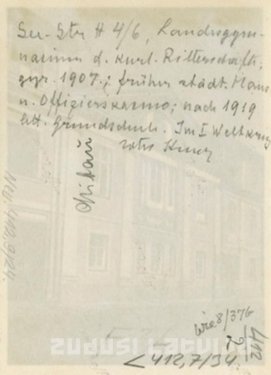 See-Str # 4/6, Landesgym-
nasium d. kurl. Ritterschaft,
gegr. 1907.; früher städt. Haus
u. Offizierskasino; nach 1919
lett. Grundschule. Im I Weltkrieg
rotes Kreuz
Mitau
wie 8/376
412
2
<412,7/34
ZUDUSI LATVIJA